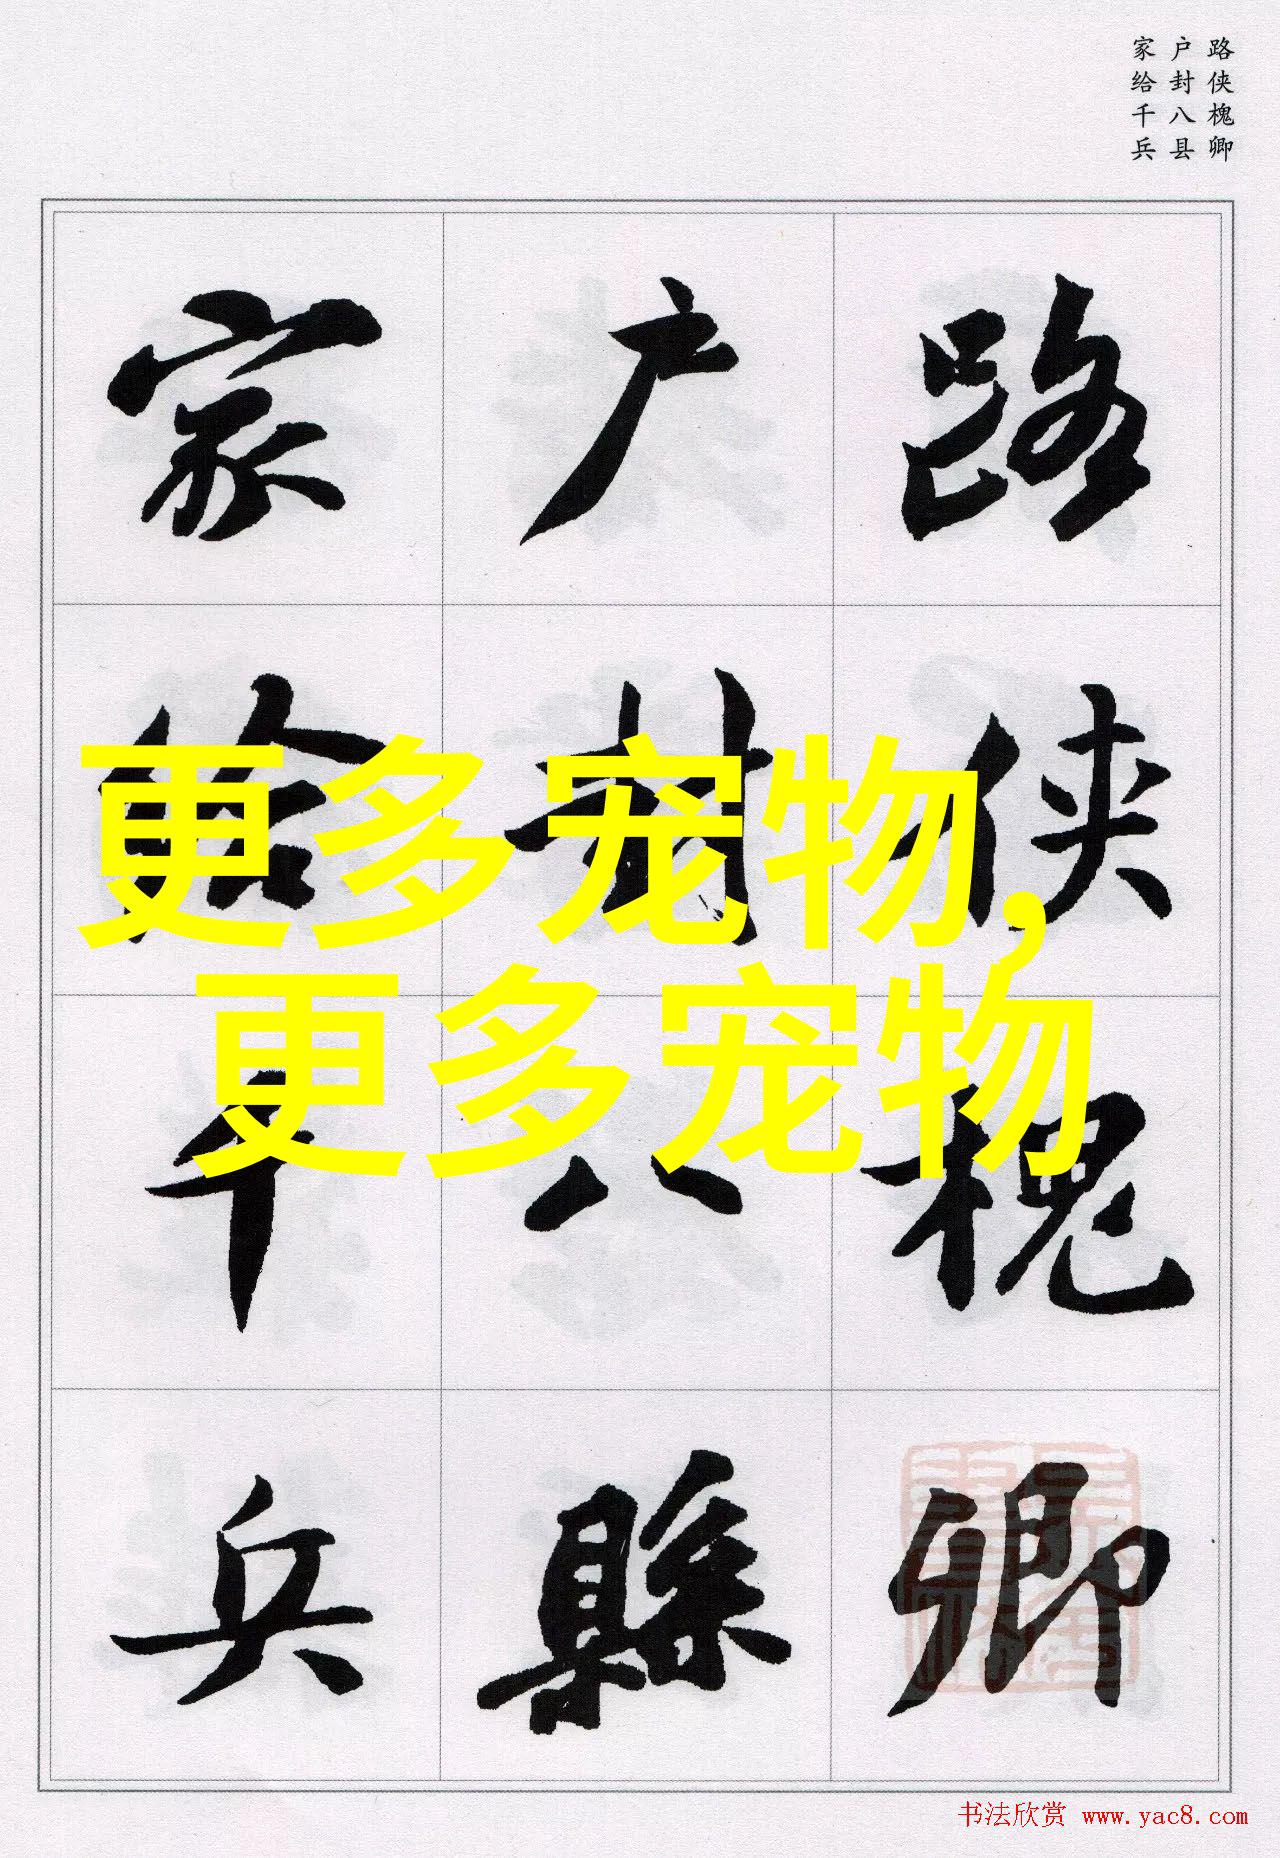 路侠槐卿
户封八县
家给千兵
路侠槐卿
户封八縣
家给千兵
更多宠物,
更多宠物
书法欣赏 www.yac8.com